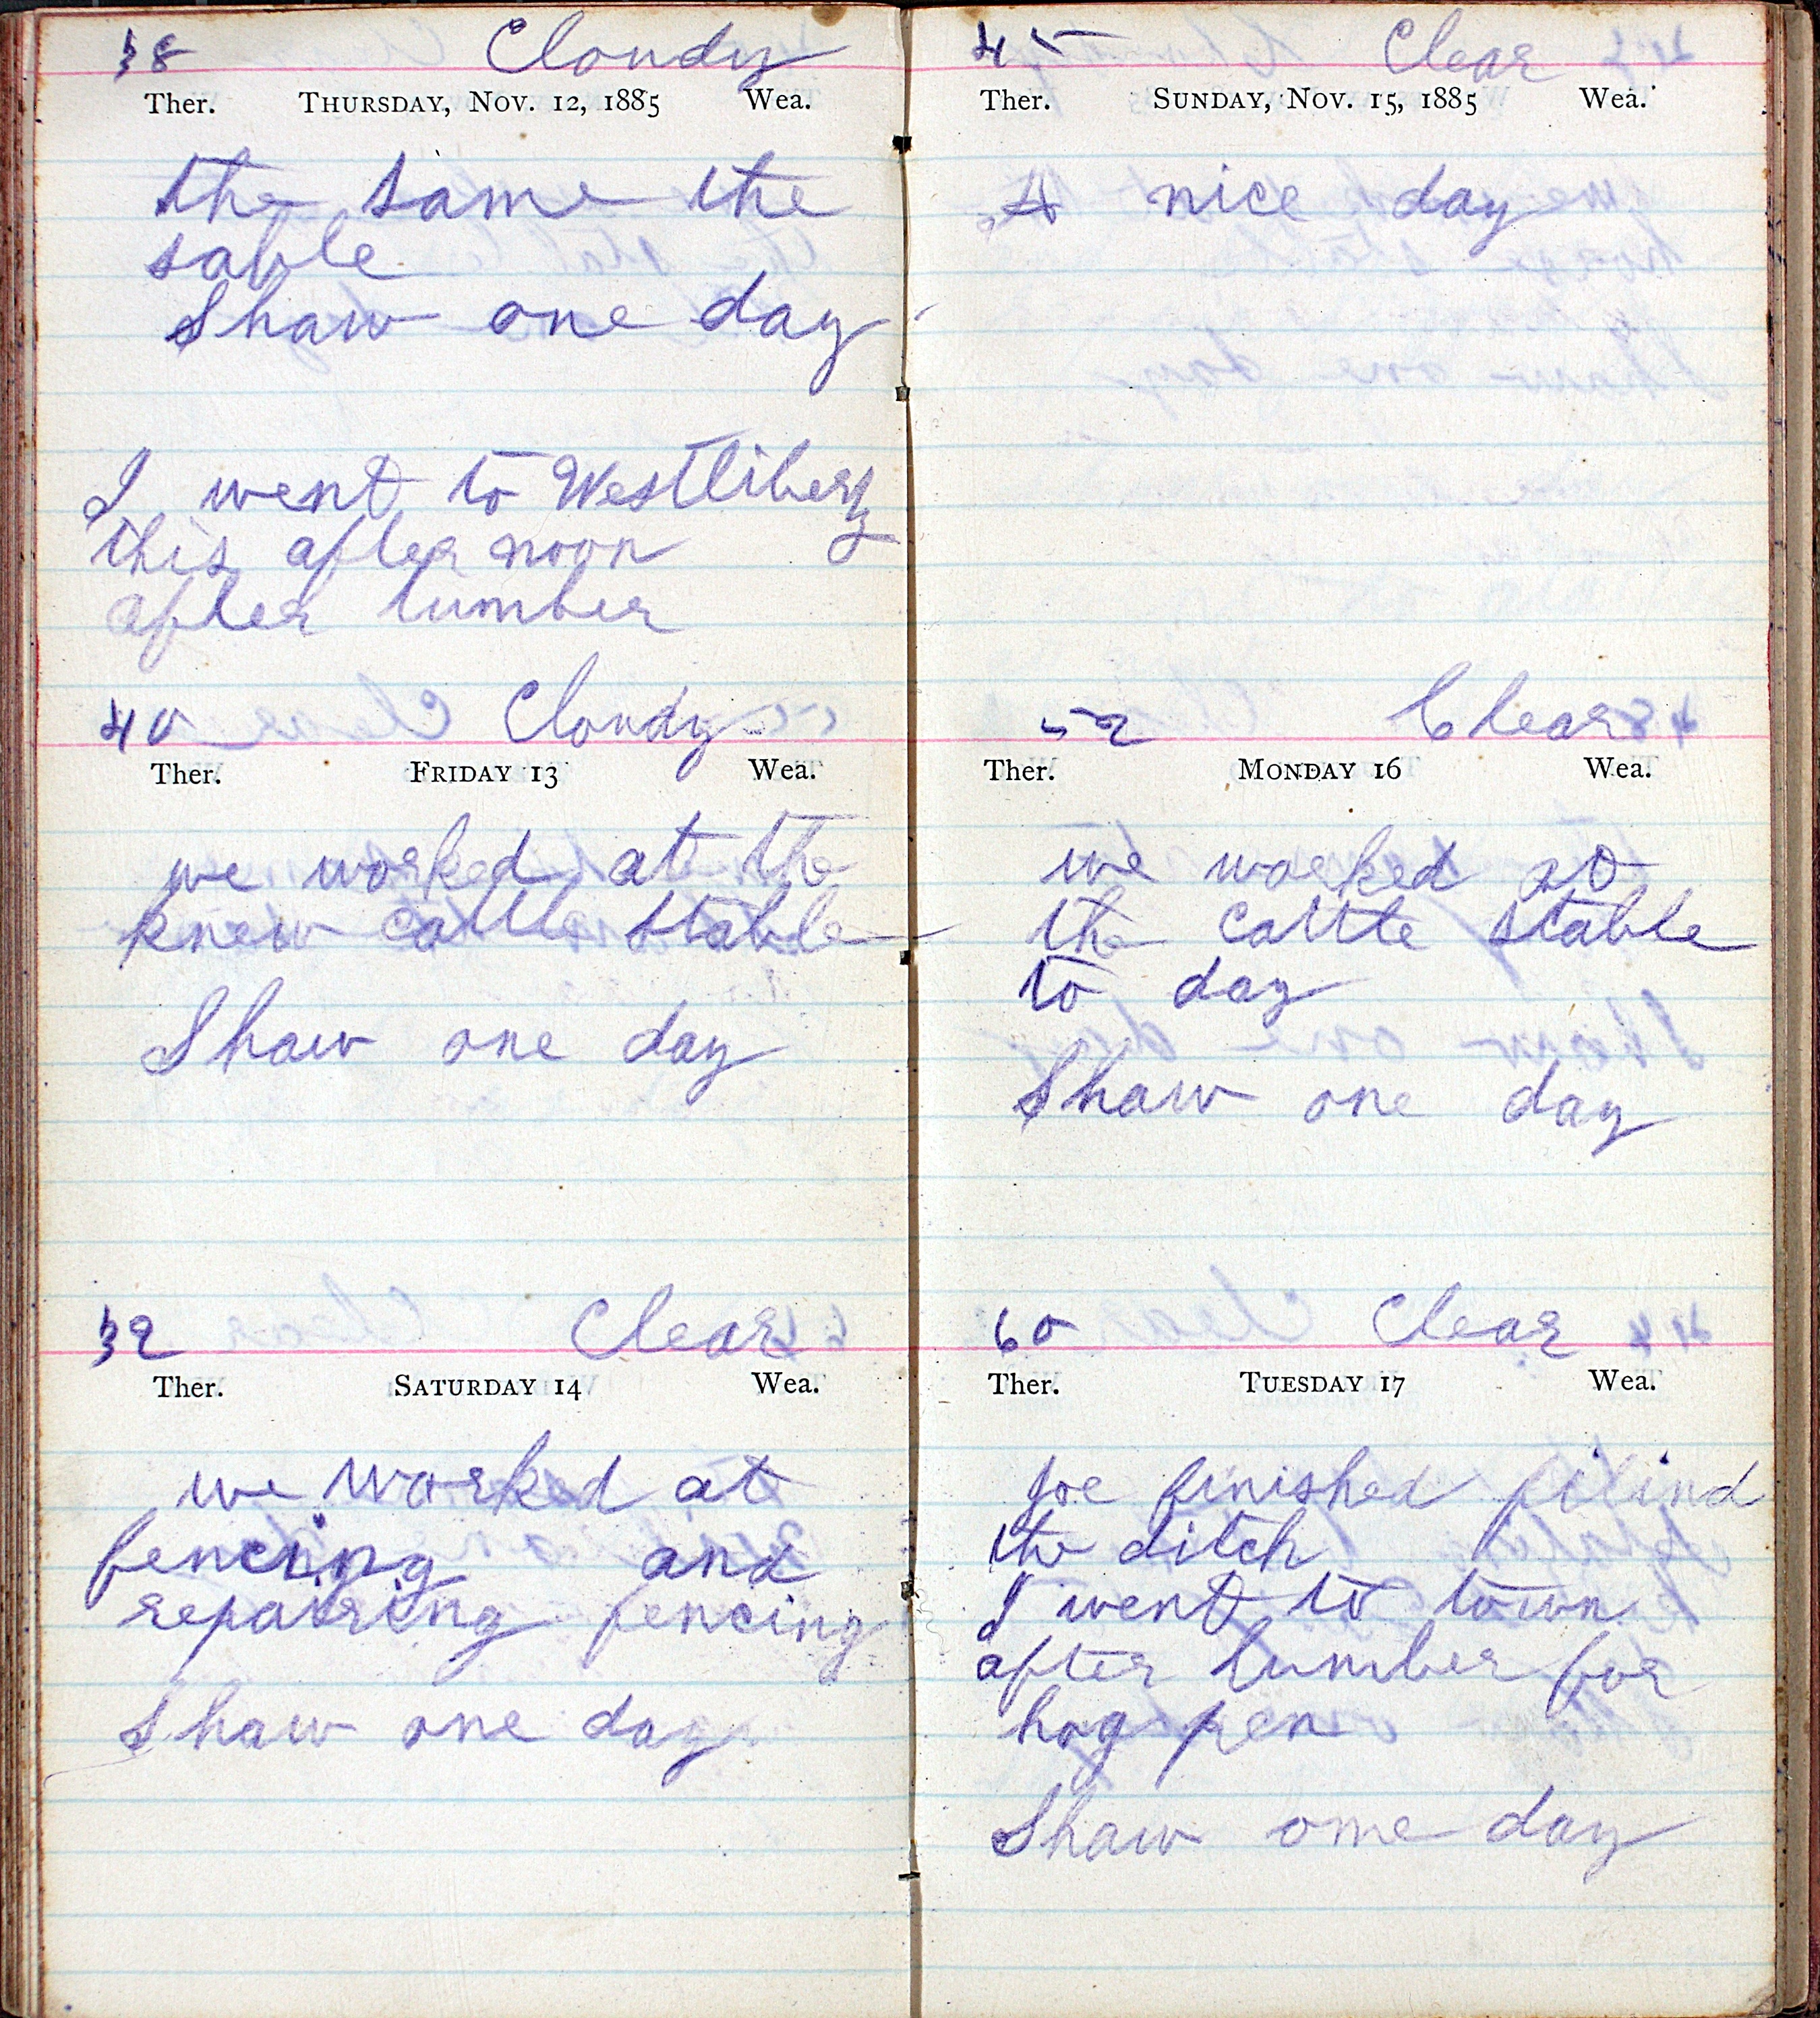 38 Cloudy
Ther. Thursday, Nov. 12, 1885 Wea.
the same the
sable
Shaw one day
I went to Westliberty
this after noon
after lumber
40 Cloudy
Ther. Friday 13 Wea.
we worked at the
knew cattle stable
Shaw one day
39 Clear
Ther. Saturday 14 Wea.
we worked at
fencing and
repairing fencing
Shaw one day
45 Clear
Ther. Sunday, Nov. 15, 1885 Wea.
A nice day
52 Clear
Ther. Monday 16 Wea.
we worked at
the cattle stable
to day
Shaw one day
60 Clear
Ther. Tuesday 17 Wea.
Joe finished filind
the ditch
I went to town
after lumber for
hog pen
Shaw ome day